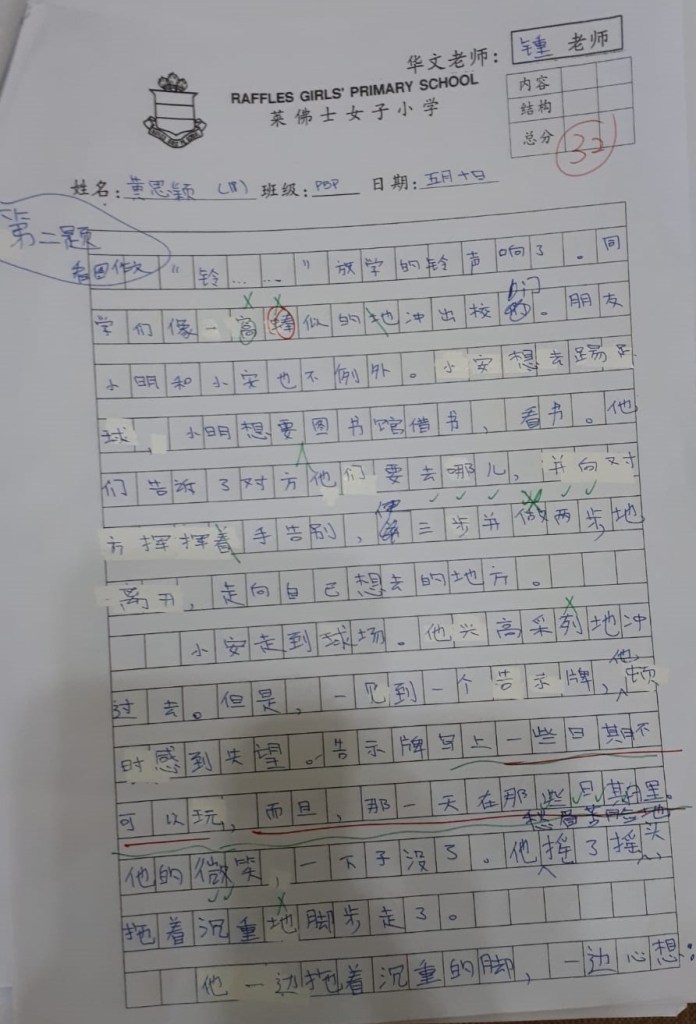 华文老师：锺老师
RAFFLES GIRLS' PRIMARY SCHOOL
莱佛士女子小学
内容
结构
总分 32
姓名：黄思颖 班级： 日期：五月十日
第二题
看图作文 "铃……"放学的铃声响了。同
学们像一窝蜂似的地冲出校门。朋友
小明和小安也不例外。小安想去踢足
球，小明想要图书馆借书，看书。他
们告诉了对方他们要去哪儿，并向对
方挥挥着手告别，三步并做两步地
离开，走向自己想去的地方。
小安走到球场。他兴高采列地冲
过去。但是，一见到一个告示牌，他顿
时感到失望。告示牌写上一些日期不
可以玩，而且，那一天在那些日期里。
他的微笑，一下子没了。他摇了摇头，
拖着沉重地脚步走了。
他一边拖着沉重的脚，一边心想：